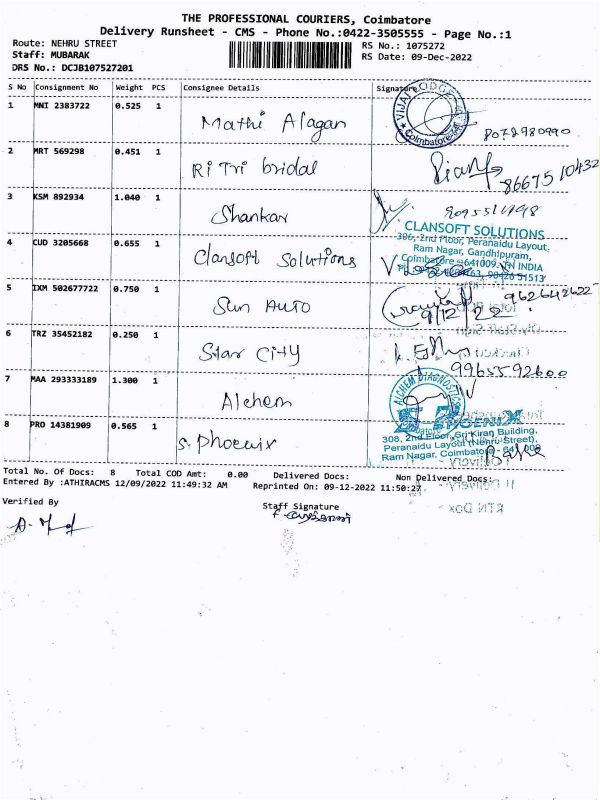 THE PROFESSIONAL COURIERS, Coimbatore
Delivery Runsheet - CMS - Phone No.:0422-3505555 - Page No.:1
Route: NEHRU STREET RS No.: 1075272
Staff: MUBARAK RS Date: 09-Dec-2022
DRS No.: DCJB107527201
S No Consignment No Weight PCS Consignee Details Signature
1 MNI 2383722 0.525 1
VIJAY LODGE
Coimbatore
Mathi Alagan 8072980990
2 MRT 569298 0.451 1
Ri Tri bridal
8667510432
3 KSM 892934 1.040 1
Shankar
CLANSOFT SOLUTIONS
306, 2nd Floor, Peranaidu Layout,
Ram Nagar, Gandhipuram,
4 CUD 3205668 0.655 1
Clansoft Solutions
Coimbatore - 641009. TN INDIA
90426 51513
5 IXM 502677722 0.750 1
Sun Auto
9/12/22
6 TRZ 35452182 0.250 1
Star City
9965592600
7 MAA 293333189 1.300 1
ALCHEM DIAGNOSTICS
Alchem
PHOENIX
8 PRO 14381909 0.565 1
308, 2nd Floor, Sri Kiran Building,
Peranaidu Layout (Nehru Street),
Ram Nagar, Coimbatore
S. Phoenix
Total No. Of Docs: 8 Total COD Amt: 0.00 Delivered Docs: Non Delivered Docs:
Entered By :ATHIRACMS 12/09/2022 11:49:32 AM Reprinted On: 09-12-2022 11:50:27
Verified By Staff Signature